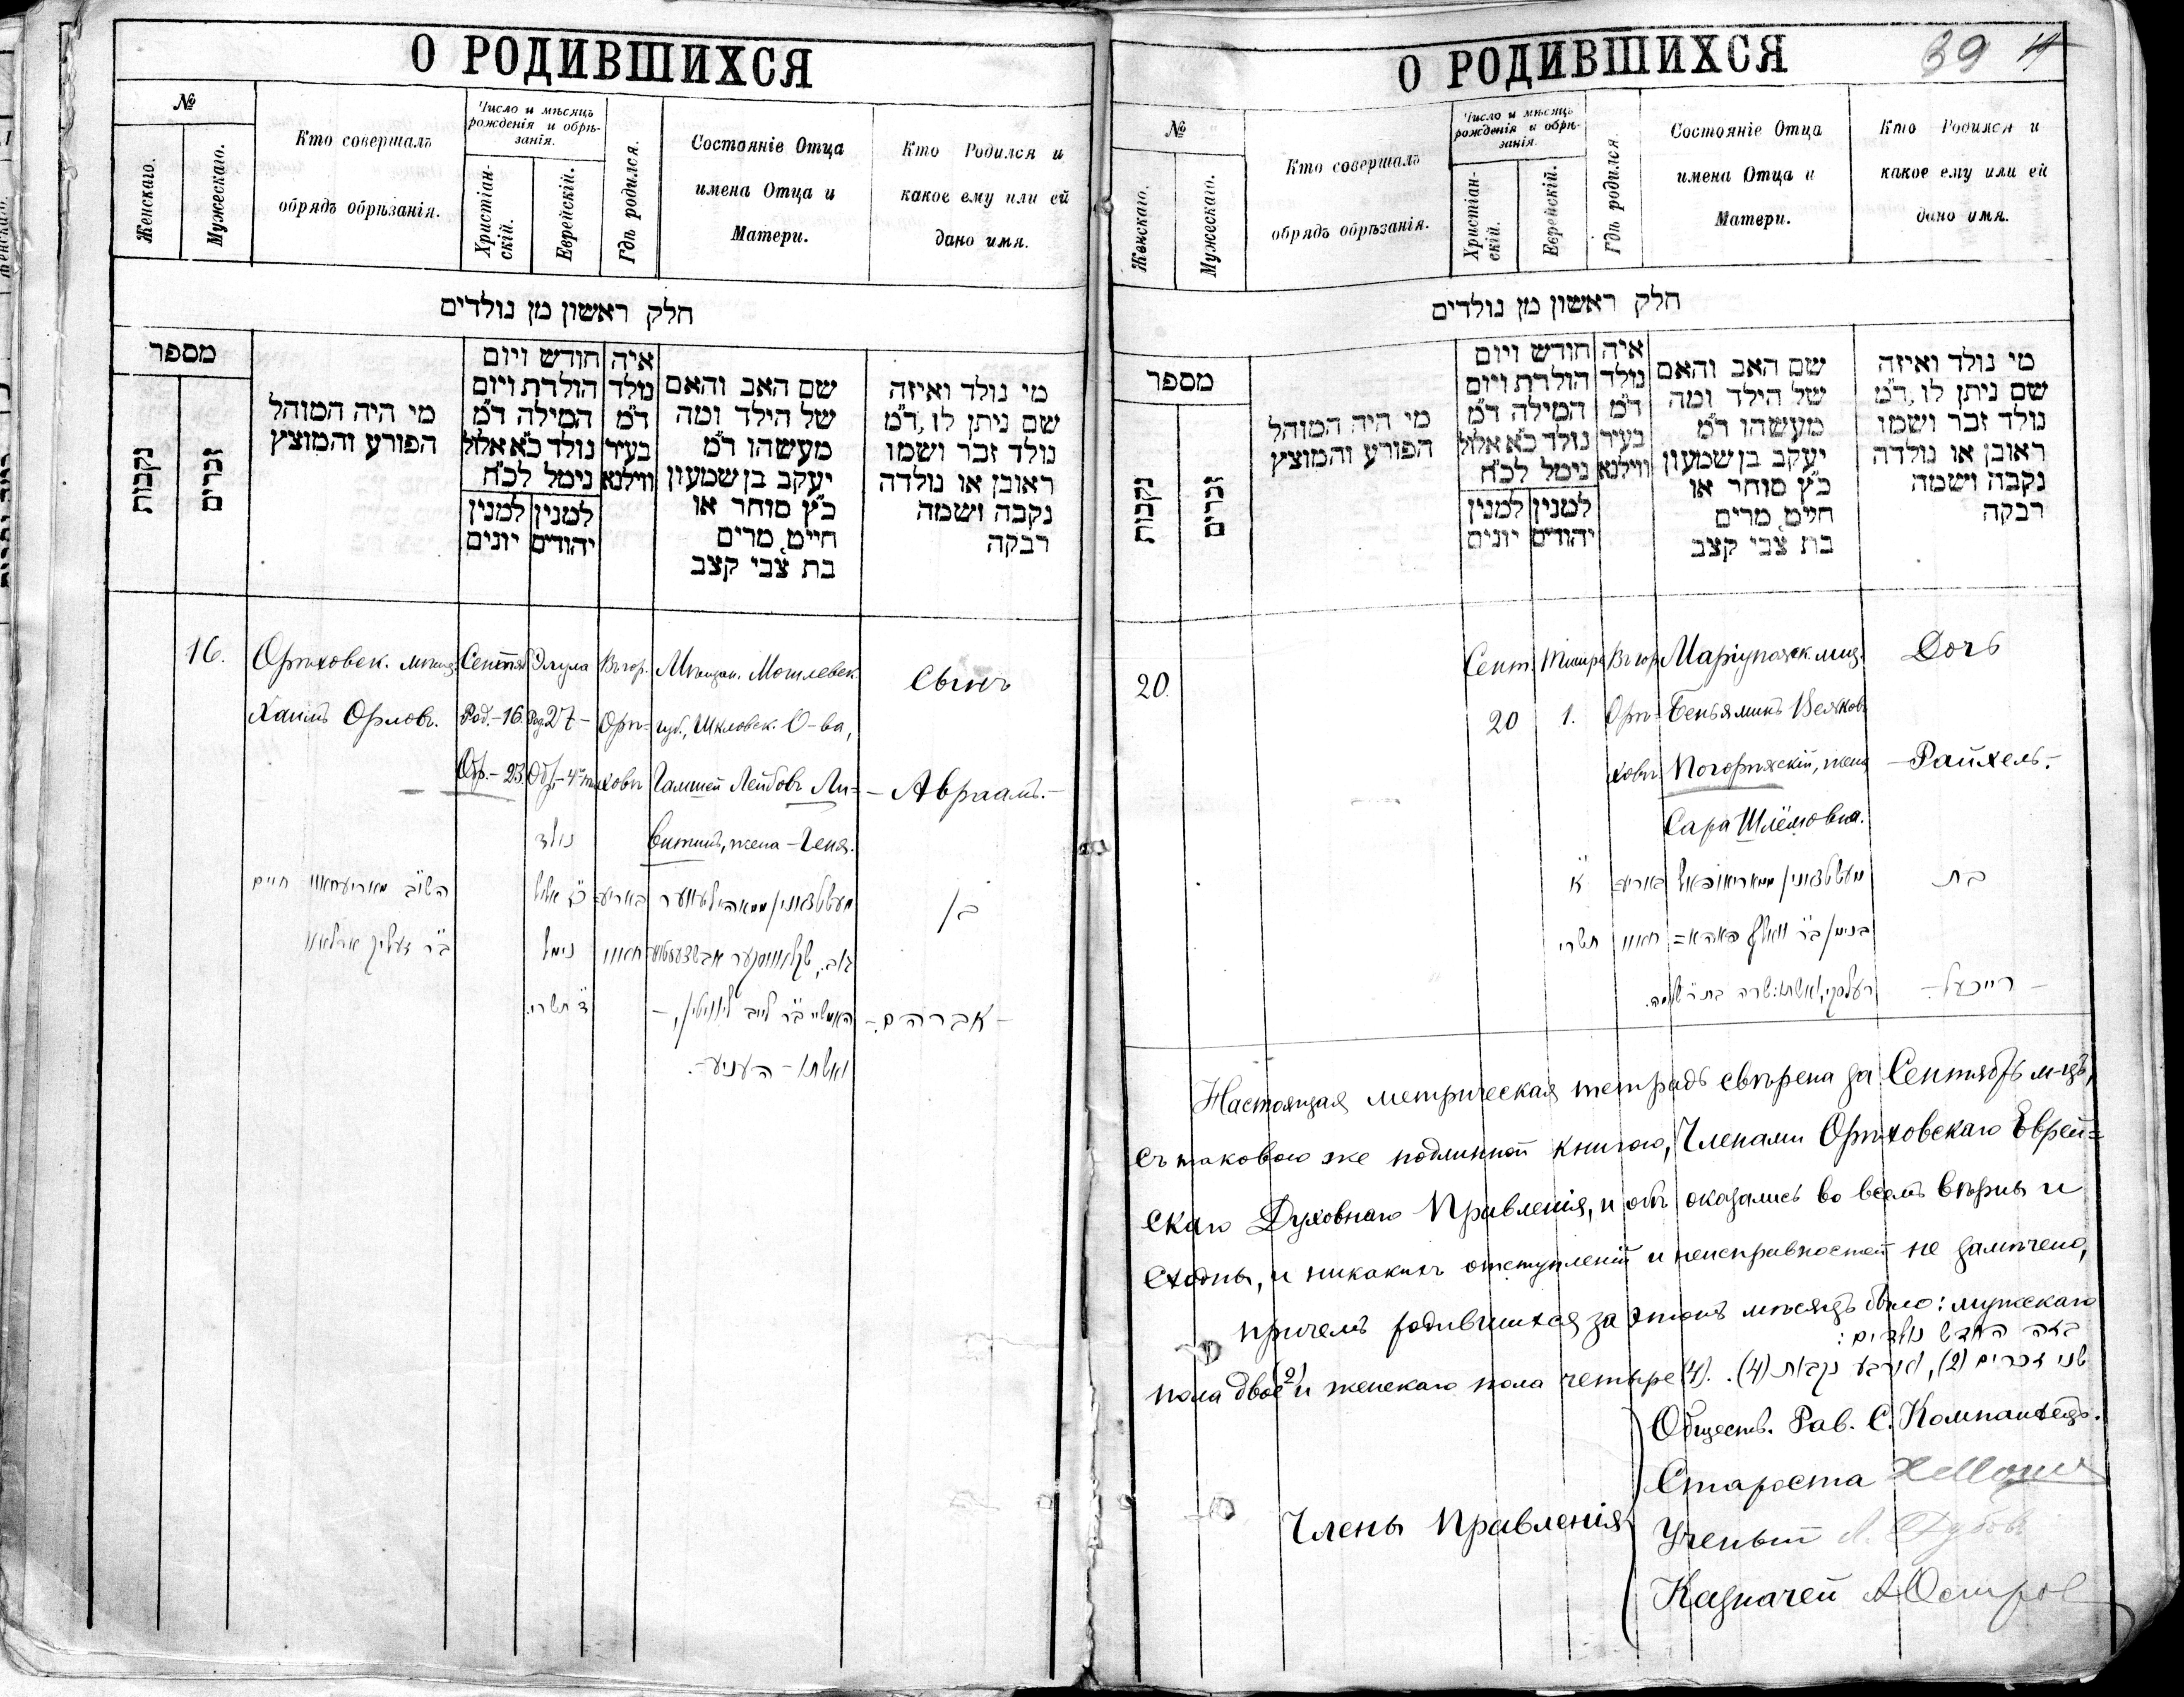 О РОДИВШИХСЯ
№
Женскаго.
Мужескаго.
Кто совершалъ
обрядъ обрѣзанія.
Число и мѣсяцъ
рожденія и обрѣ-
занія.
Христіан-
скій.
Еврейскій.
Гдѣ родился.
Состояніе Отца
имена Отца и
Матери.
Кто Родился и
какое ему или ей
дано имя.
חלק ראשון מן נולדים
מספר
נקבות
זכרים
מי היה המוהל
הפורע והמוצץ
חודש ויום
הולדת ויום
המילה ד״מ
נולד כ״א אלול
נימל לכ״ח
למנין
יונים
למנין
יהודים
איה
נולד
ד״מ
בעיר
ווילנא
שם האב והאם
של הילד ומה
מעשהו ד״מ
יעקב בן שמעון
כ״ץ סוחר או
חייט, מרים
בת צבי קצב
מי נולד ואיזה
שם ניתן לו, ד״מ
נולד זכר ושמו
ראובן או נולדה
נקבה ושמה
רבקה
16.
Орѣховск. мѣщ.
Хаимъ Орловъ.
Сентяб
Род.-16.
Обр.-23.
Элула
Род. 27-
Въ гор.
Орѣ-
ховѣ
Мѣщан. Могилевск.
губ., Шкловск. О-ва,
Гамшей Лейбовъ Ли-
витинъ, жена - Геня.
Сынъ
- Авраамъ. -
חיים
נולד
כ״ז אלול
נימל
ד׳ תשרי.
בן
- אברהם. -
ואשתו - העניע -.
О РОДИВШИХСЯ
39
№
Женскаго.
Мужескаго.
Кто совершалъ
обрядъ обрѣзанія.
Число и мѣсяцъ
рожденія и обрѣ-
занія.
Христіан-
скій.
Еврейскій.
Гдѣ родился.
Состояніе Отца
имена Отца и
Матери.
Кто Родился и
какое ему или ей
дано имя.
חלק ראשון מן נולדים
מספר
נקבות
זכרים
מי היה המוהל
הפורע והמוצץ
חודש ויום
הולדת ויום
המילה ד״מ
נולד כ״א אלול
נימל לכ״ח
למנין
יונים
למנין
יהודים
איה
נולד
ד״מ
בעיר
ווילנא
שם האב והאם
של הילד ומה
מעשהו ד״מ
יעקב בן שמעון
כ״ץ סוחר או
חייט, מרים
בת צבי קצב
מי נולד ואיזה
שם ניתן לו, ד״מ
נולד זכר ושמו
ראובן או נולדה
נקבה ושמה
רבקה
20.
Сент.
20
Тишре
1.
Въ гор.
Орѣ-
ховѣ
Маріупольск. мѣщ.
Беньяминъ Велвков
Погорѣлскій, жена
Сара Шлёмовна.
Дочь
- Райхель. -
א׳
תשרי
בת
- רייכעל. -
Настоящая метрическая тетрадь свѣрена за Сентябрь м-цъ,
съ таковою же подлинной книгою, Членами Орѣховскаго Еврей-
скаго Духовнаго Правленія, и обѣ оказались во всемъ вѣрны и
сходны, и никакихъ отступленій и неисправностей не замѣчено,
причемъ родившихся за этотъ мѣсяцъ было: мужескаго
בזה החדש נולדים:
пола двое (2) и женскаго пола четыре (4).
שני זכרים (2), וארבע נקבות (4).
Члены Правленія
Обществ. Рав. С. Компанѣецъ.
Староста
Ученый Л. Дубовъ
Казначей А Остров